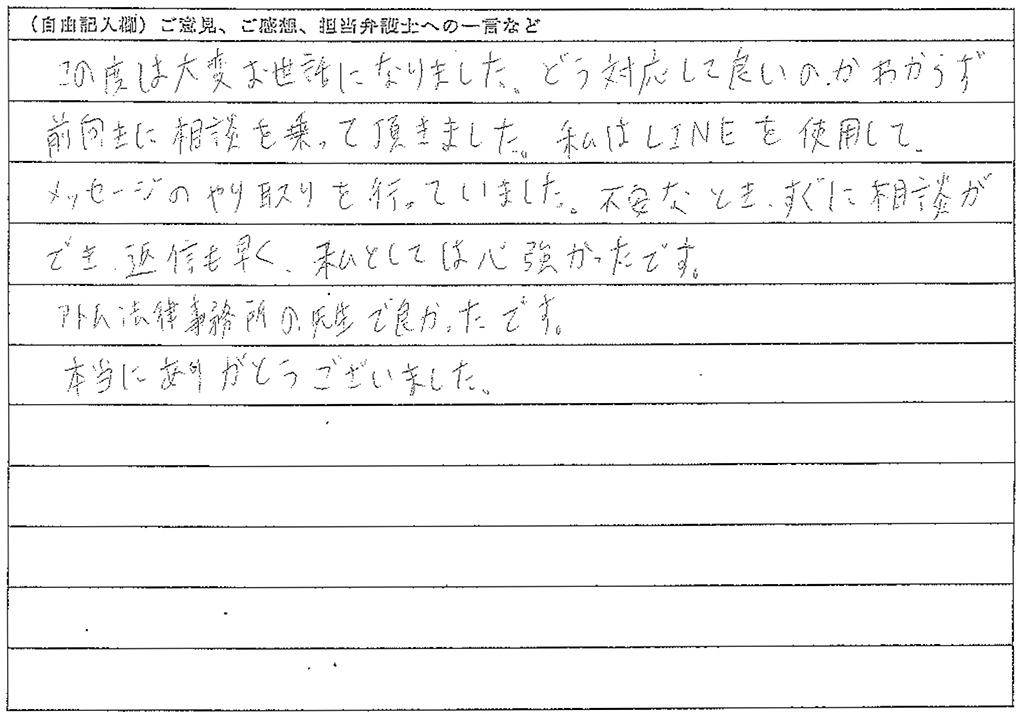 （自由記入欄）ご意見、ご感想、担当弁護士への一言など
この度は大変お世話になりました。どう対応して良いのかわからず
前向きに相談を乗って頂きました。私はLINEを使用して、
メッセージのやり取りを行っていました。不安なとき、すぐに相談が
でき、返信も早く、私としては心強かったです。
アトム法律事務所の先生で良かったです。
本当にありがとうございました。